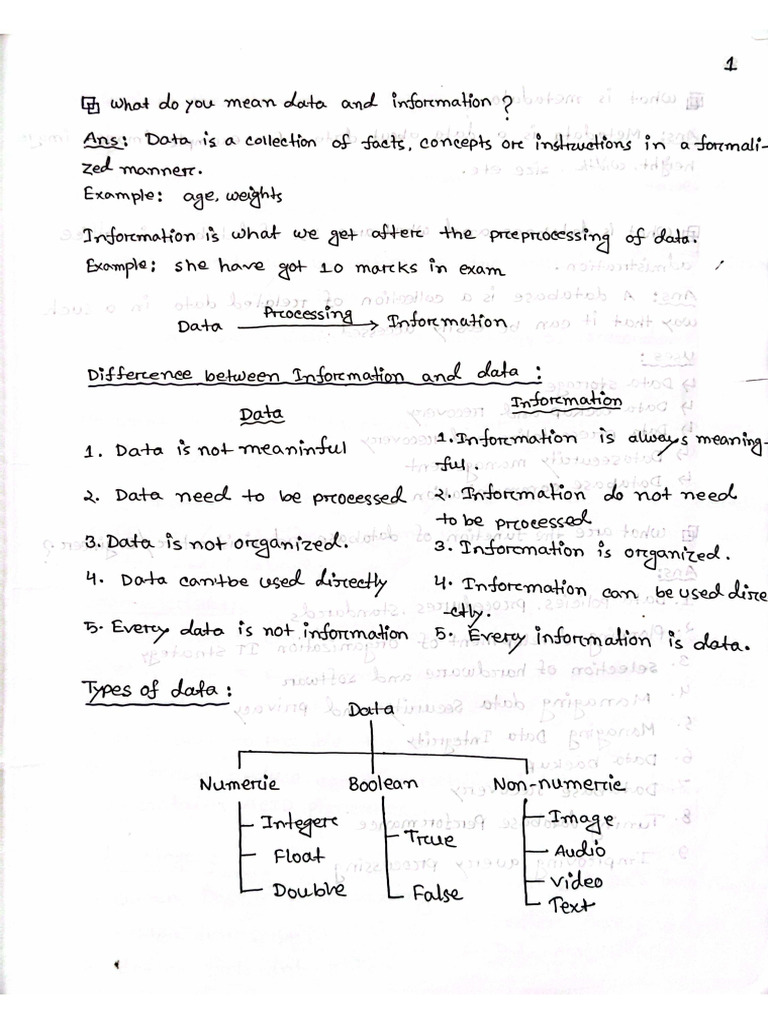 1
What do you mean data and information?
Ans: Data is a collection of facts, concepts or instructions in a formali-
zed manner.
Example: age, weights
Information is what we get after the preprocessing of data.
Example: she have got 10 marks in exam
Processing
Data → Information
Difference between Information and data:
Data Information
1. Data is not meaninful 1. Information is always meaning-
ful.
2. Data need to be processed 2. Information do not need
to be processed
3. Data is not organized. 3. Information is organized.
4. Data can't be used directly 4. Information can be used dire
-ctly.
5. Every data is not information 5. Every information is data.
Types of data:
Data
Numeric Boolean Non-numeric
Integer True Image
Float Audio
Double False Video
Text